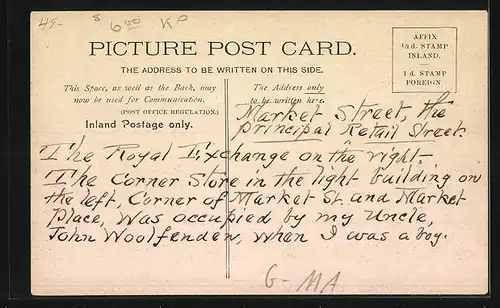 49-
6
KP
PICTURE POST CARD.
THE ADDRESS TO BE WRITTEN ON THIS SIDE.
AFFIX
½d. STAMP
INLAND.
—
1d. STAMP
FOREIGN
This Space, as well as the Back, may
now be used for Communication.
(POST OFFICE REGULATION.)
Inland Postage only.
The Address only
to be written here.
Market Street, the
principal Retail Street.
The Royal Exchange on the right—
The Corner Store in the light building on
the left, Corner of Market St. and Market
Place, was occupied by my Uncle,
John Woolfenden, when I was a boy.
G-MA